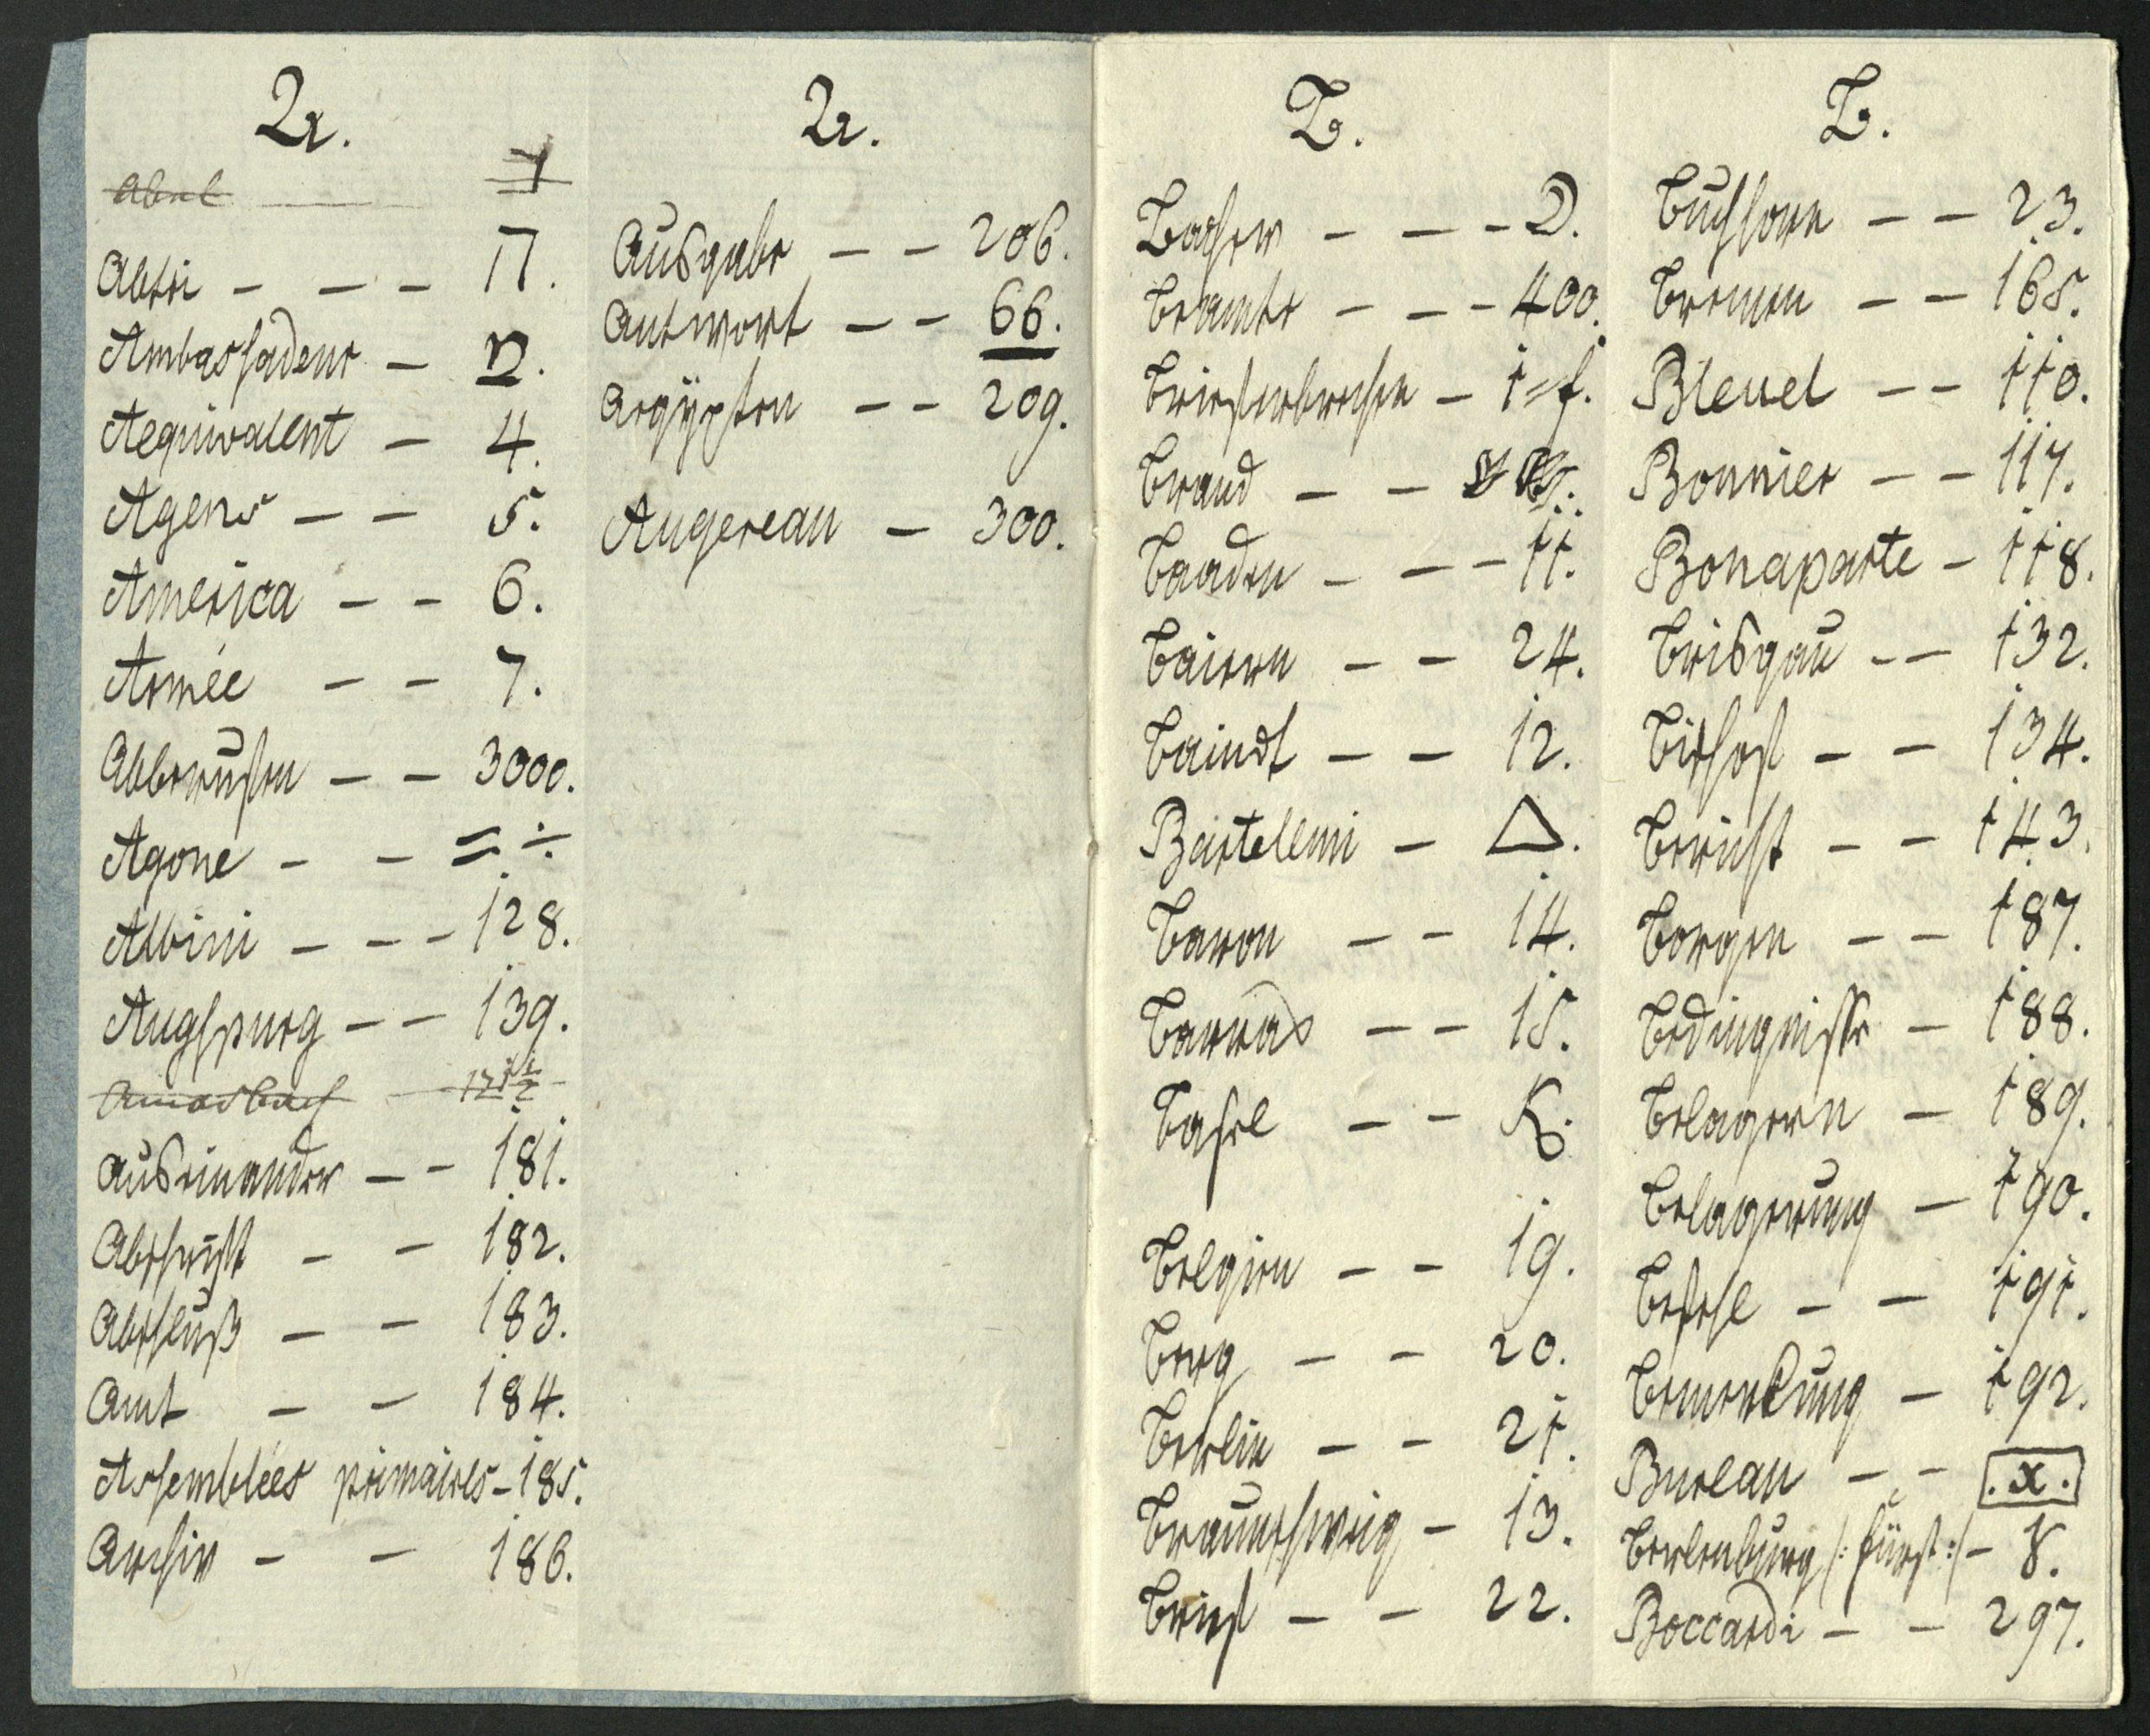 A.
Abt
Abtei - - - Π.
Ambassadeur - n.
Aequivalent - 4.
Agens - - 5.
America - - 6.
Armée - - 7.
Abbrechen - - 3000.
Agone - - = ÷
Albini - - - 128.
Augspurg - - 139.
auseinander - - 181.
Abschrift - - 182.
Abschluß - - 183.
Amt - - 184.
Assemblées primaires - 185.
Archiv - - 186.
A.
Ausgabe - - 206.
Antwort - - 66.
Aegÿpten - - 209.
Augereau - 300.
B.
Bacher - - - D.
Beamte - - - 400.
Brieferbrechen - 1=f.
Brand - -
Baaden - - - 11.
Baiern - - 24.
Baindt - - 12.
Bartellemi - Δ.
Baron - - 14.
Barras - - 15.
Basel - - K.
Belgien - - 19.
Berg - - 20.
Berlin - - 21.
Braunschweig - 13.
Brief - - 22.
B.
Buchhorn - - 23.
Bremen - - 165.
Bleuel - - 110.
Bonnier - - 117.
Bonaparte - 118.
Brisgau - - 132.
Bischof - - 134.
Bericht - - 143.
Borgen - - 187.
Bedingnisse - 188.
Belagern - 189.
Belagerung - 190.
Befehl - - 191.
Bemerkung - 192.
Bureau - - .x.
Berlenburg /: Fürst :/ - 8.
Boccardi - - 297.